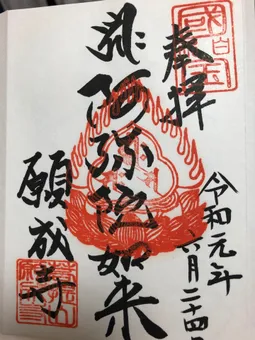 奉拝
令和元年六月二十四日
阿弥陀如来
願成寺